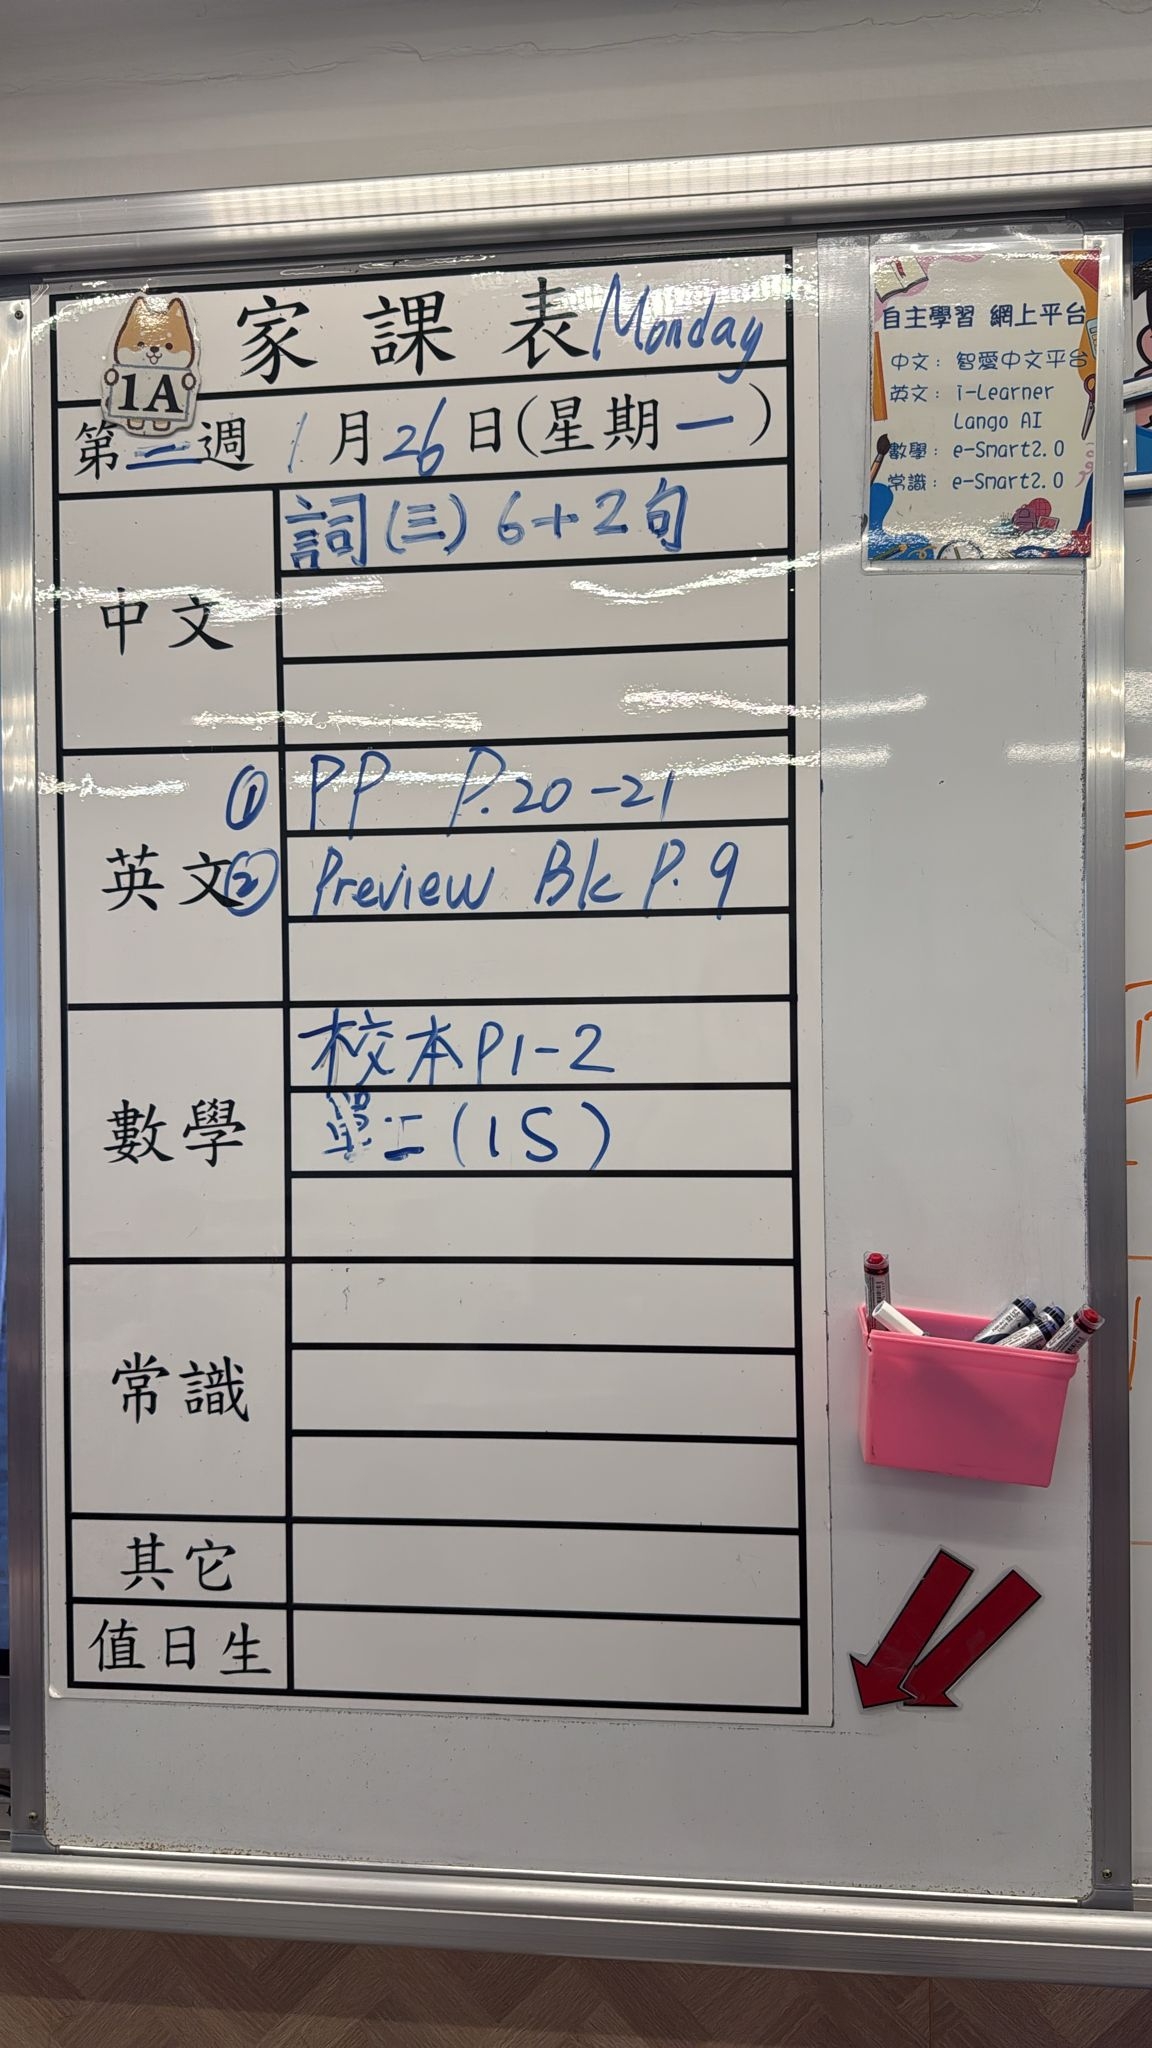 家課表 Monday
1A
第二週 1月26日(星期一)
中文
詞(三) 6+2句
英文
① PP P.20-21
② Preview Bk P.9
數學
校本P1-2
單二(15)
常識
其它
值日生
自主學習 網上平台
中文: 智愛中文平台
英文: i-Learner
Lango AI
數學: e-Smart2.0
常識: e-Smart2.0